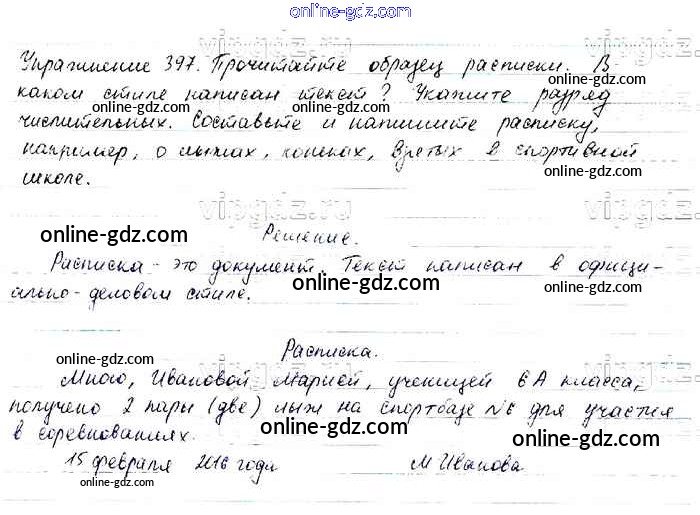 online-gdz.com
vipgdz.ru
online-gdz.com
Упражнение 397. Прочитайте образец расписки. В
каком стиле написан текст? Укажите разряд
online-gdz.com online-gdz.com
числительных. Составьте и напишите расписку,
online-gdz.com
например, о лыжах, коньках, взятых в спортивной
online-gdz.com
школе.
vipgdz.ru
online-gdz.com
Решение.
online-gdz.com
Расписка - это документ. Текст написан в офици-
ально-деловом стиле.
online-gdz.com online-gdz.com
Расписка.
online-gdz.com
vipgdz.ru
Мною, Ивановой Марией, ученицей 6 А класса,
online-gdz.com
получено 2 пары (две) лыж на спортбазе №6 для участия
online-gdz.com
в соревнованиях.
online-gdz.com
15 февраля 2016 года М Иванова
online-gdz.com online-gdz.com